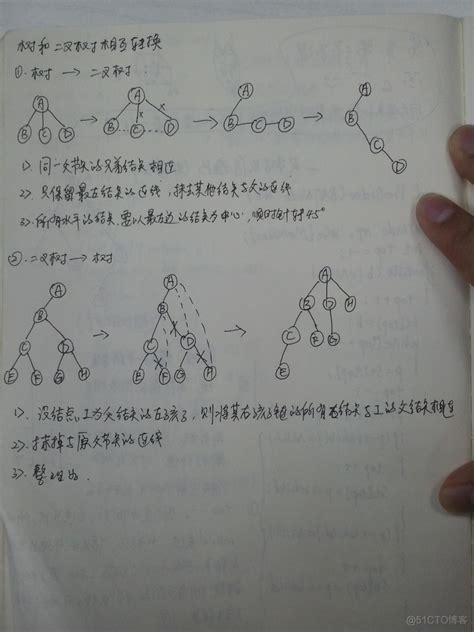 树和二叉树相互转换
①. 树 → 二叉树.
A A A A
B C D → B C D → B C D → B C D
1). 同一父节点的兄弟结点相连
2). 只保留最左结点的连线, 抹去其他结点与父的连线
3). 所有水平的结点, 要以最左边的结点为中心, 顺时针转45°
②. 二叉树 → 树.
A A A
B B B D H
C D C D C F G
E F G H E F G H E
1). 设结点I为父结点的左孩子, 则将其右孩子链的所有右结点与I的父结点相连
2). 抹掉与原父节点的连线
3). 整理出.
@51CTO博客